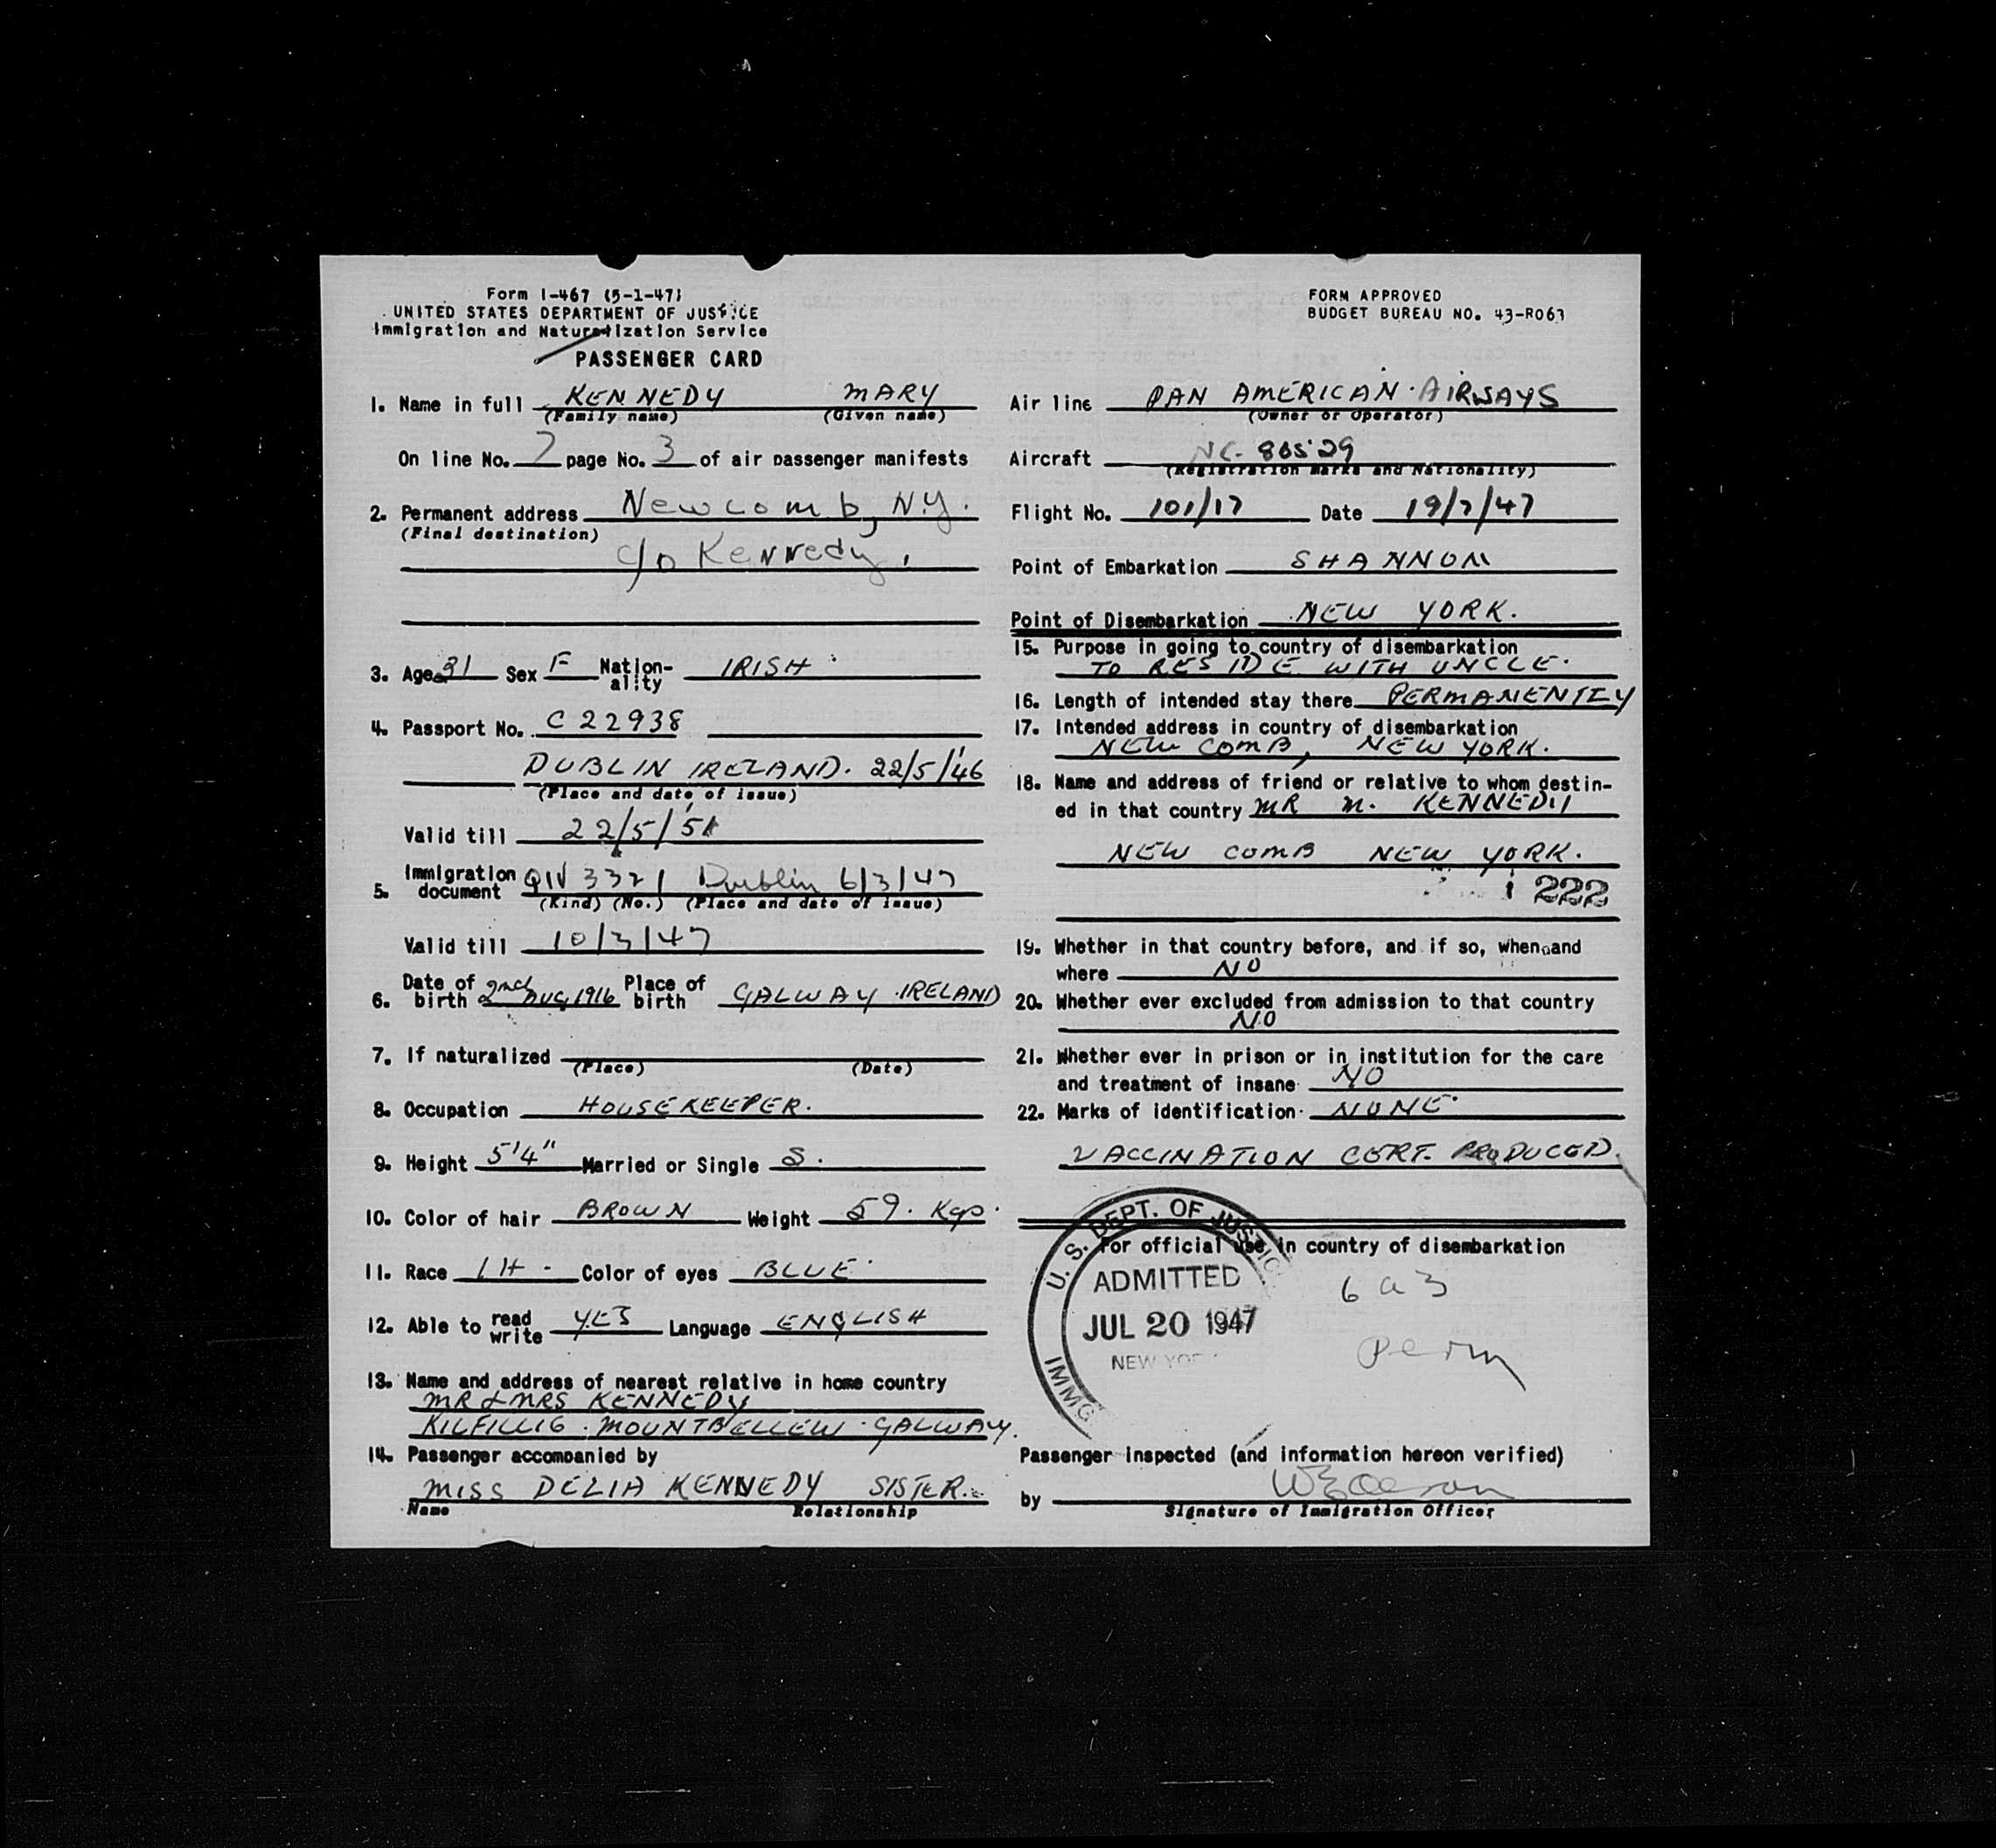 Form I-467 (5-1-47)
UNITED STATES DEPARTMENT OF JUSTICE
Immigration and Naturalization Service
PASSENGER CARD
1. Name in full KENNEDY MARY
(Family name) (Given name)
On line No. 7 page No. 3 of air passenger manifests
2. Permanent address Newcomb, N.Y.
(Final destination)
c/o Kennedy.
3. Age 31 Sex F Nation-ality IRISH
4. Passport No. C 22938
DUBLIN IRELAND. 22/5/46
(Place and date of issue)
Valid till 22/5/51
5. Immigration document QIV 3321 Dublin 6/3/47
(Kind) (No.) (Place and date of issue)
Valid till 10/3/47
6. Date of birth 2nd AUG 1916 Place of birth GALWAY IRELAND
7. If naturalized
(Place) (Date)
8. Occupation HOUSEKEEPER.
9. Height 5'4" Married or Single S.
10. Color of hair BROWN Weight 59. Kgs.
11. Race IH. Color of eyes BLUE
12. Able to read write YES Language ENGLISH
13. Name and address of nearest relative in home country
MR & MRS KENNEDY
KILFILLIG. MOUNTBELLEW. GALWAY.
14. Passenger accompanied by
MISS DELIA KENNEDY SISTER.
Name Relationship
FORM APPROVED
BUDGET BUREAU NO. 43-R063
Air line PAN AMERICAN AIRWAYS
(Owner or Operator)
Aircraft NC. 88529
(Registration marks and Nationality)
Flight No. 101/17 Date 19/7/47
Point of Embarkation SHANNON
Point of Disembarkation NEW YORK.
15. Purpose in going to country of disembarkation
TO RESIDE WITH UNCLE.
16. Length of intended stay there PERMANENTLY
17. Intended address in country of disembarkation
NEW COMB, NEW YORK.
18. Name and address of friend or relative to whom destin-
ed in that country MR M. KENNEDY
NEW COMB NEW YORK.
222
19. Whether in that country before, and if so, when and
where NO
20. Whether ever excluded from admission to that country
NO
21. Whether ever in prison or in institution for the care
and treatment of insane NO
22. Marks of identification NONE
VACCINATION CERT. PRODUCED.
For official use in country of disembarkation
U. S. DEPT. OF JUSTIC
ADMITTED
JUL 20 1947
NEW YOR
IMMG
6 a 3
Perm
Passenger inspected (and information hereon verified)
by
Signature of Immigration Officer